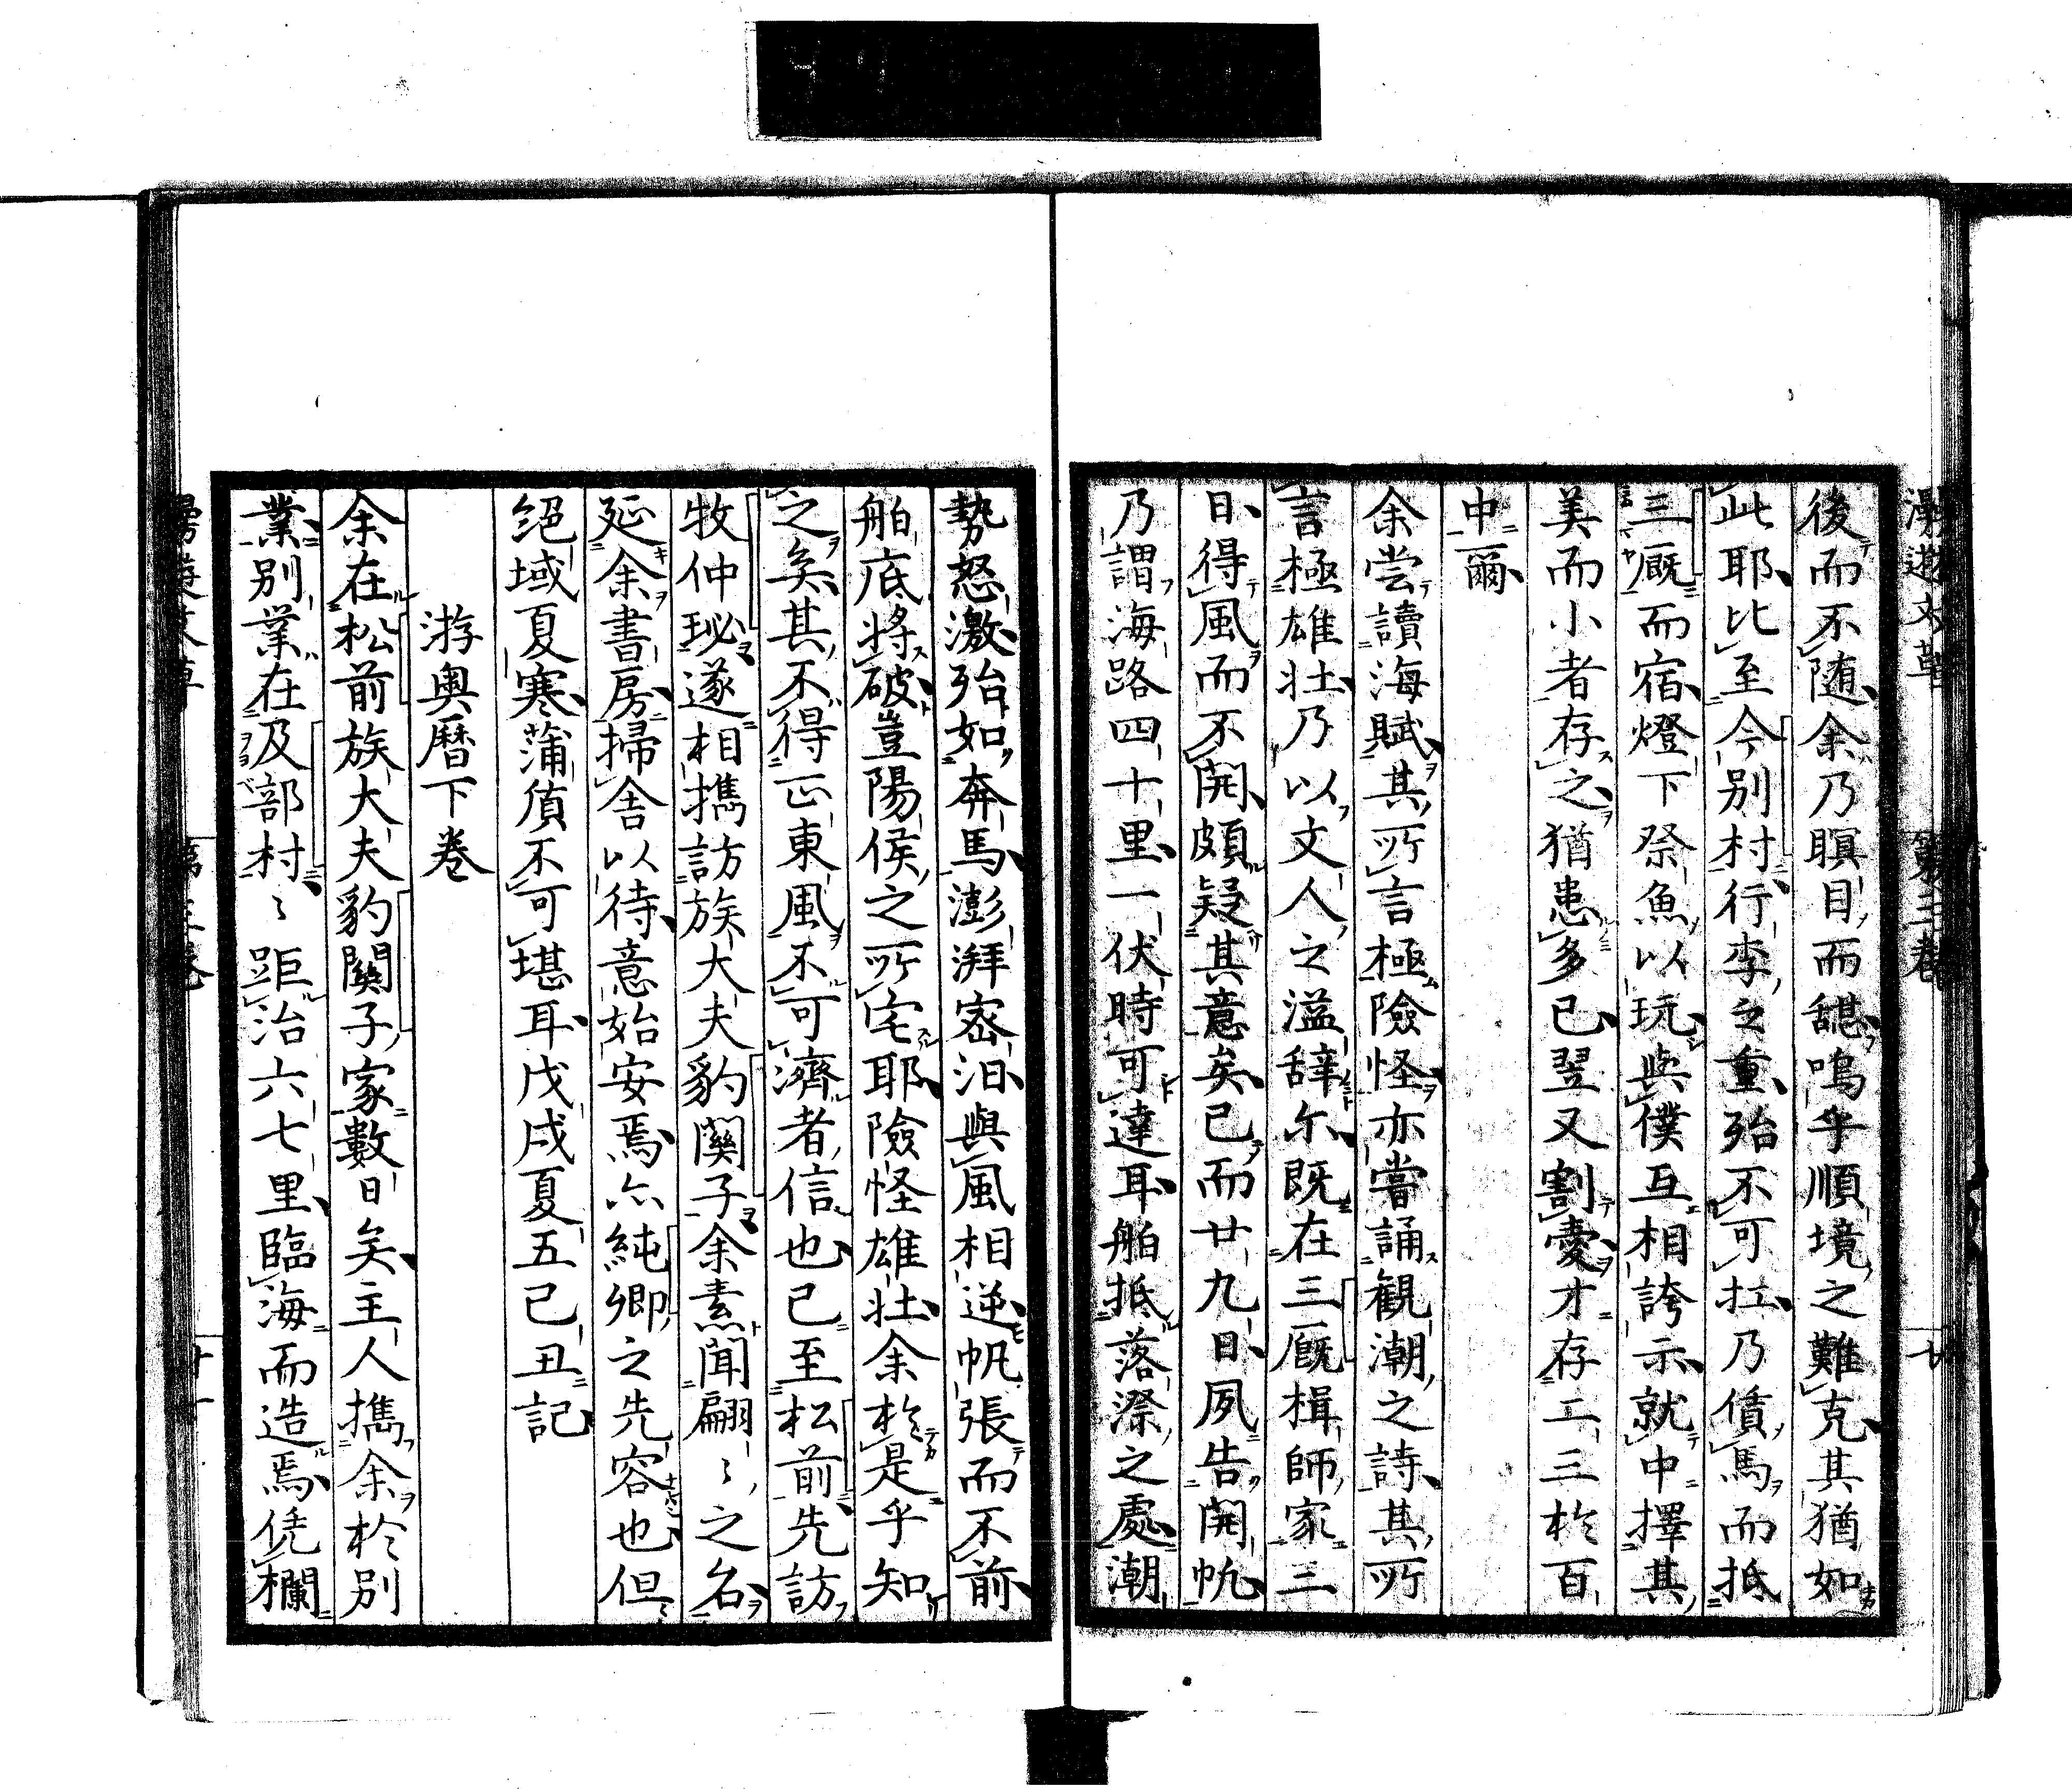 漫遊文草 第三卷 廿
後而不随余乃瞑目而謖嗚乎順境之難克其猶如
此耶比至今別村行李之重殆不可扛乃債馬而抵
三厩而宿燈下祭魚以玩與僕互相誇示就中擇其
美而小者存之猶患多已翌又割愛才存二三於百
中爾
余嘗讀海賦其所言極險怪亦嘗誦観潮之詩其所
言極雄壮乃以文人之溢辞尓既在三厩楫師家三
日得風而不開頗疑其意矣已而廿九日夙告開帆
乃謂海路四十里一伏時可達耳舶抵落漈之處潮
勢怒激殆如奔馬澎湃宻汨與風相逆帆張而不前
舶底将破豈陽侯之所宅耶險怪雄壮余於是乎知
之矣其不得正東風不可濟者信也已至松前先訪
牧仲珌遂相攜訪族大夫豹関子余素聞翩〻之名
延余書房掃舎以待意始安焉亦純卿之先容也但
絕域夏寒蒲傎不可堪耳戊戌夏五己丑記
游奥暦下巻
余在松前族大夫豹関子家數日矣主人攜余於別
業別業在及部村〻距治六七里臨海而造焉凭欄